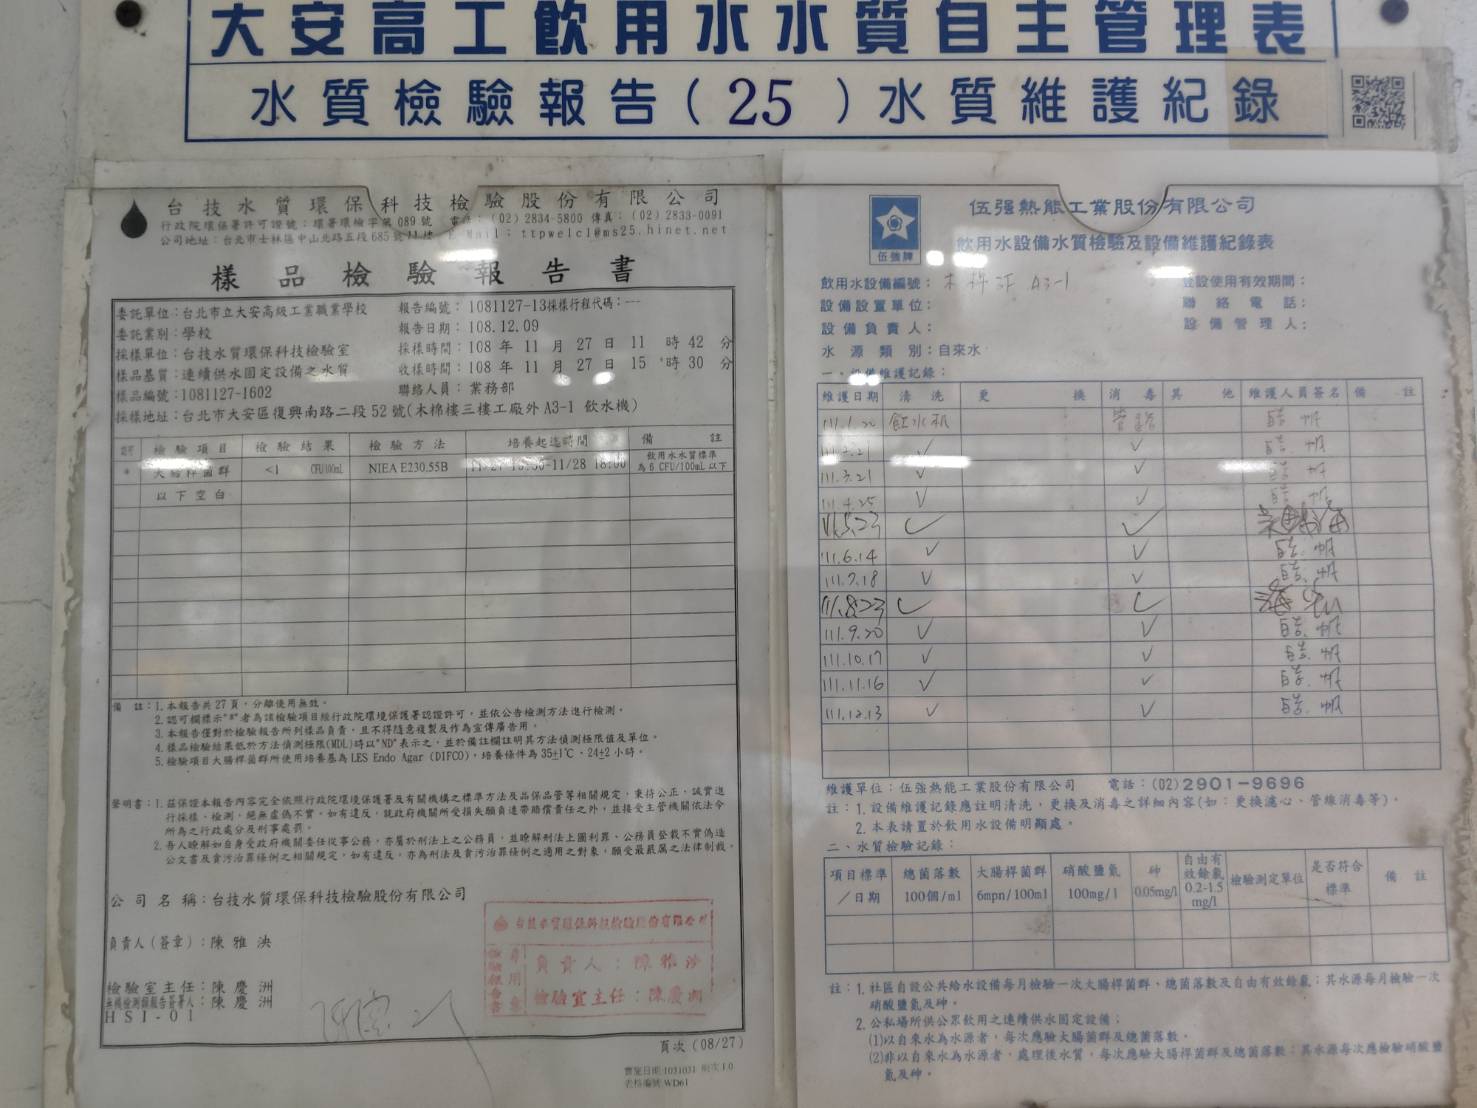 大安高工飲用水水質自主管理表
水質檢驗報告(25)水質維護紀錄
台技水質環保科技檢驗股份有限公司
行政院環保署許可證號：環署環檢字第089號 電話：(02) 2834-5800 傳真：(02) 2833-0091
公司地址：台北市士林區中山北路五段685號11樓 E-Mail：ttpwelcl@ms25.hinet.net
樣品檢驗報告書
委託單位：台北市立大安高級工業職業學校 報告編號：1081127-13採樣行程代碼：---
委託業別：學校 報告日期：108.12.09
採樣單位：台技水質環保科技檢驗室 採樣時間：108 年 11 月 27 日 11 時 42 分
樣品基質：連續供水固定設備之水質 收樣時間：108 年 11 月 27 日 15 時 30 分
樣品編號：1081127-1602 聯絡人員：業務部
採樣地址：台北市大安區復興南路二段 52 號(木棉樓三樓工廠外 A3-1 飲水機)
檢驗項目 檢驗結果 檢驗方法 培養起迄時間 備註
* 大腸桿菌群 <1 CFU/100mL NIEA E230.55B 飲用水水質標準
為 6 CFU/100mL 以下
以下空白
備 註：1.本報告共27頁，分離使用無效。
2.認可欄標示"*"者為該檢驗項目經行政院環境保護署認證許可，並依公告檢測方法進行檢測。
3.本報告僅對於檢驗報告所列樣品負責，且不得隨意複製及作為宣傳廣告用。
4.樣品檢驗結果低於方法偵測極限(MDL)時以"ND"表示之，並於備註欄註明其方法偵測極限值及單位。
5.檢驗項目大腸桿菌群所使用培養基為 LES Endo Agar (DIFCO)，培養條件為 35±1℃、24±2 小時。
聲明書：1.茲保證本報告內容完全依照行政院環境保護署及有關機構之標準方法及品保品管等相關規定，秉持公正、誠實進
行採樣、檢測，絕無虛偽不實，如有違反，就政府機關所受損失願負連帶賠償責任之外，並接受主管機關依法令
所為之行政處分及刑事處罰。
2.吾人瞭解如自身受政府機關委任從事公務，亦屬於刑法上之公務員，並瞭解刑法上圖利罪、公務員登載不實偽造
公文書及貪污治罪條例之相關規定，如有違反，亦為刑法及貪污治罪條例之適用之對象，願受最嚴厲之法律制裁。
公司名稱：台技水質環保科技檢驗股份有限公司
負責人(簽章)：陳雅泱
檢驗室主任：陳慶洲
無機檢測類報告簽署人：陳慶洲
HSI-01
台技水質環保科技檢驗股份有限公司
檢驗報告書
專用章
負責人：陳雅泱
檢驗室主任：陳慶洲
頁次 (08/27)
實施日期:1031031 版次:1.0
表格編號:WD61
伍強牌
伍強熱能工業股份有限公司
飲用水設備水質檢驗及設備維護紀錄表
飲用水設備編號： A3-1 建設使用有效期間：
設備設置單位： 聯絡電話：
設備負責人： 設備管理人：
水源類別：自來水
一、設備維護記錄：
維護日期 清洗 更換 消毒 其他 維護人員簽名 備註
111.1.20 飲水机 管路
111.2.21 ✓ ✓
111.3.21 ✓ ✓
111.4.25 ✓ ✓
111.5.23 ✓ ✓
111.6.14 ✓ ✓
111.7.18 ✓ ✓
111.8.23 ✓ ✓
111.9.20 ✓ ✓
111.10.17 ✓ ✓
111.11.16 ✓ ✓
111.12.13 ✓ ✓
維護單位：伍強熱能工業股份有限公司 電話：(02)2901-9696
註：1.設備維護記錄應註明清洗，更換及消毒之詳細內容(如：更換濾心、管線消毒等)。
2.本表請置於飲用水設備明顯處。
二、水質檢驗記錄：
項目標準／日期 總菌落數 100個/ml 大腸桿菌群 6mpn/100ml 硝酸鹽氮 100mg/l 砷 0.05mg/l 自由有效餘氯 0.2-1.5 mg/l 檢驗測定單位 是否符合標準 備註
註：1.社區自設公共給水設備每月檢驗一次大腸桿菌群、總菌落數及自由有效餘氯；其水源每月檢驗一次
硝酸鹽氮及砷。
2.公私場所供公眾飲用之連續供水固定設備；
(1)以自來水為水源者，每次應驗大腸菌群及總菌落數。
(2)非以自來水為水源者，處理後水質，每次應驗大腸桿菌群及總菌落數；其水源每次應檢驗硝酸鹽
氮及砷。